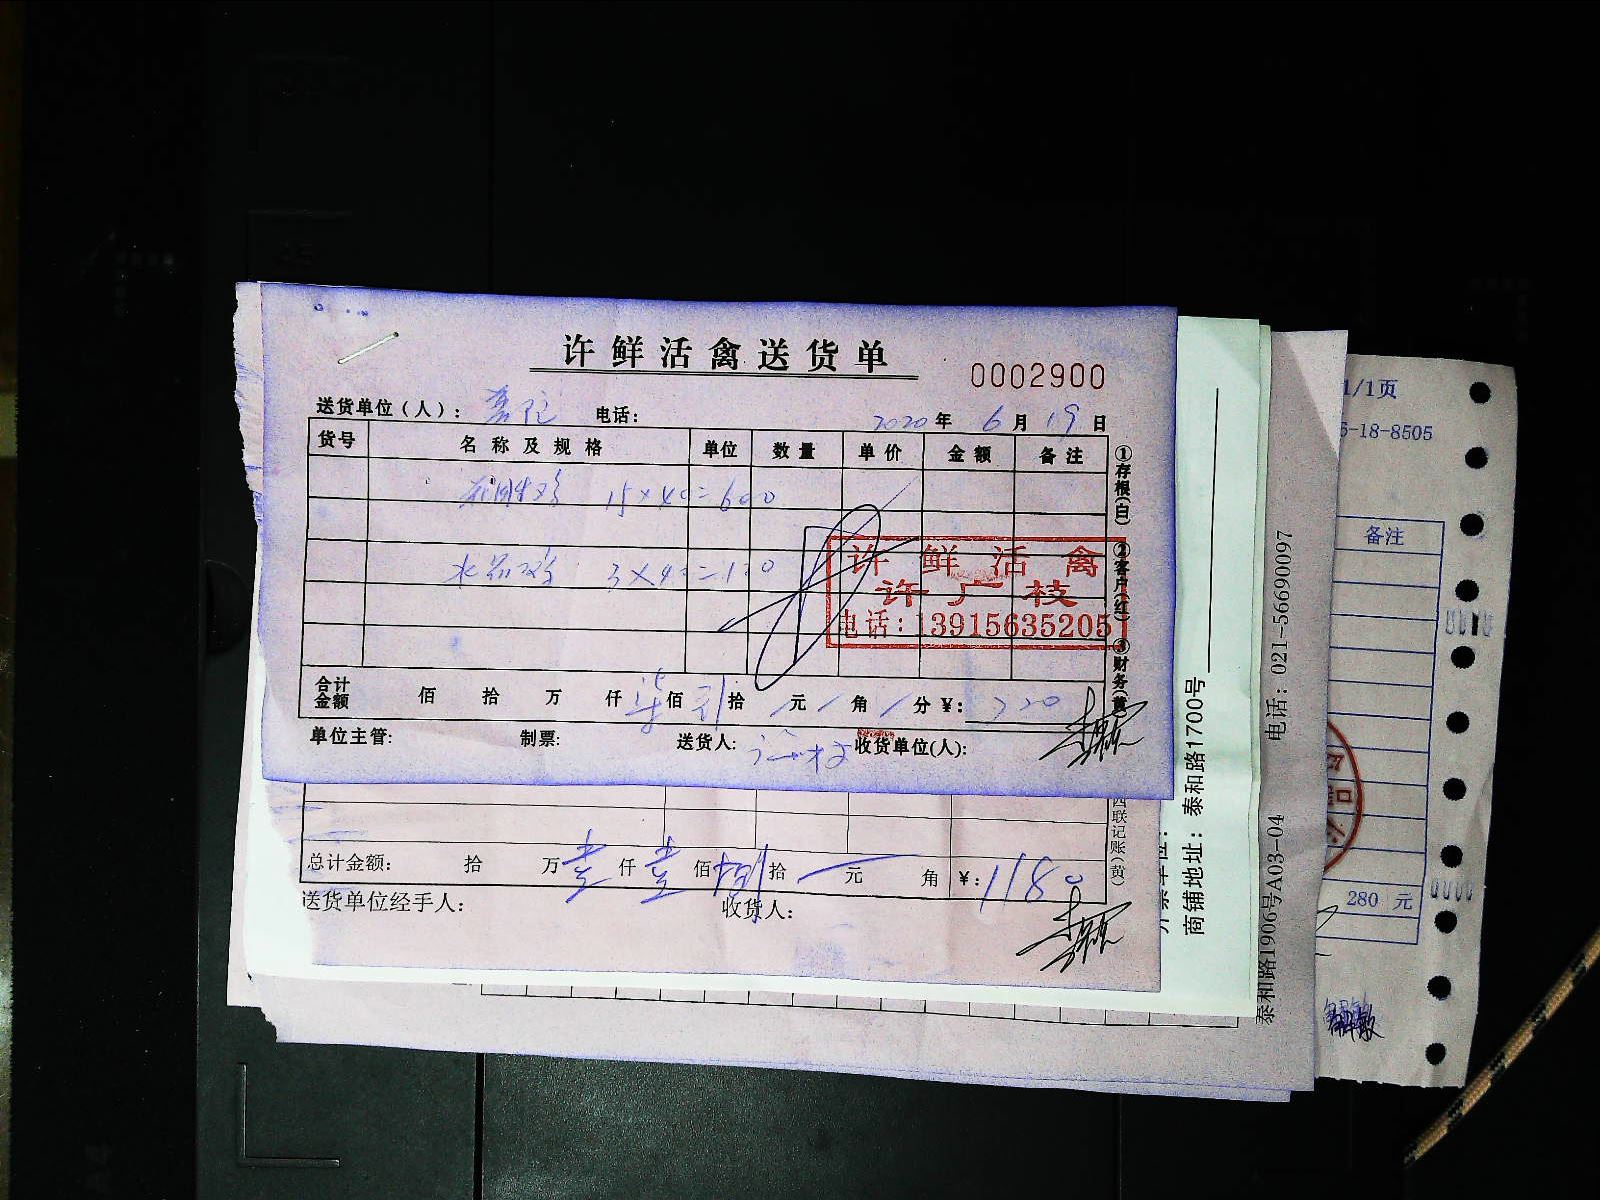 许鲜活禽送货单
0002900
送货单位(人): 电话: 2020年6月19日
货号 名称及规格 单位 数量 单价 金额 备注
鸡 15×40=600
水晶鸡 3×40=120
①存根(白) ②客户(红) ③财务(黄)
许鲜活禽
许广枝
电话:13915635205
合计金额 佰 拾 万 仟 柒佰 贰拾 元 角 分 ¥: 720
单位主管: 制票: 送货人: 收货单位(人):
四联记账(黄)
总计金额: 拾 万 壹仟 壹佰 捌拾 元 角 ¥:1180
送货单位经手人: 收货人:
商铺地址: 泰和路1700号
泰和路1906号A03-04 电话: 021-56690097
1/1页
-18-8505
备注
280 元